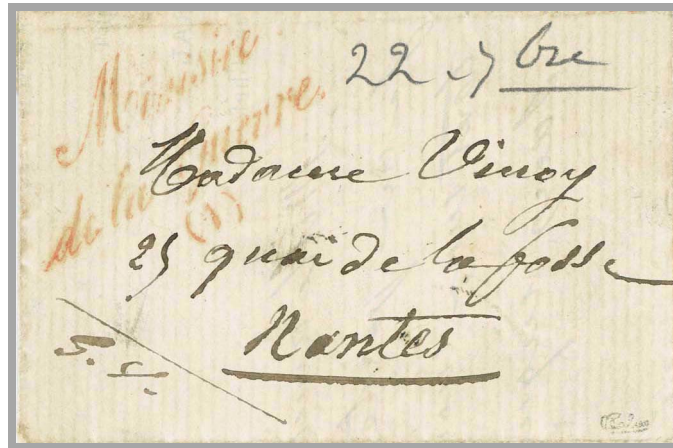 Ministère
de la Guerre.
(1)
22 . 7 bre
Madame Vinoy
25 quai de la fosse
Nantes